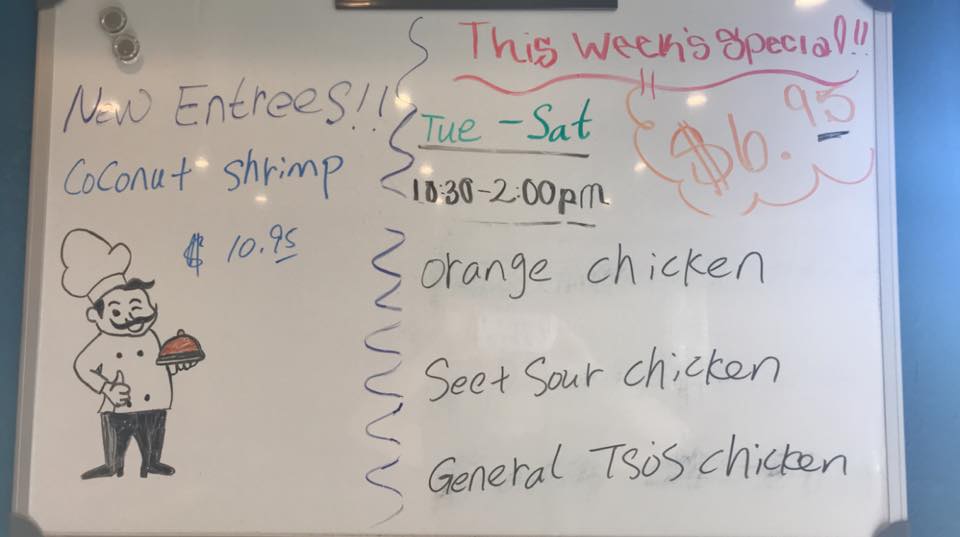 New Entrees!!
Coconut shrimp
$ 10.95
This week's special!!
$6.95
Tue - Sat
10:30-2:00pm
orange chicken
Seet Sour chicken
General Tso's chicken